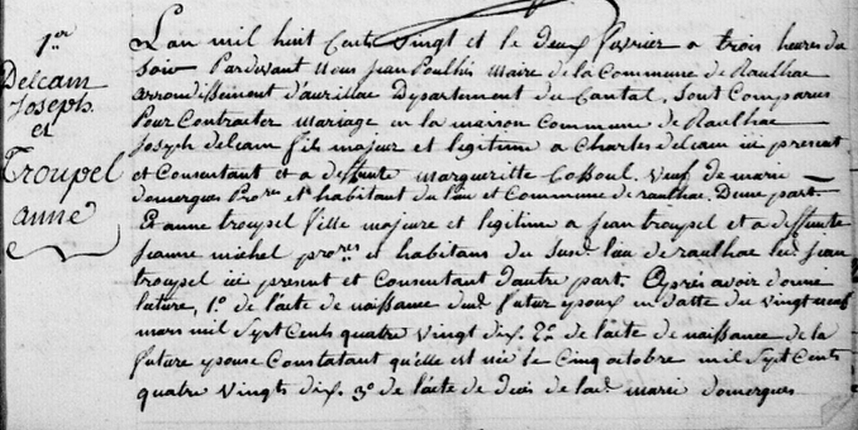 1er
Delcam
Joseph.
et
Troupel
anne
L'an mil huit Cents vingt et le deux fevrier a trois heures du
soir Pardevant Nous jean Poulhès Maire de la Commune de Raulhac
arrondissement d'aurillac Département du Cantal. Sont Comparus
Pour Contracter mariage en la maison Commune de Raulhac
Joseph delcam fils majeur et legitime a Charles delcam ici present
et Consentant et a deffunte margueritte Cossoul. veuf de marie
domergues Pro.res et habitant du lieu et Commune de raulhac. D'une part
Et anne troupel fille majeure et legitime a jean troupel et a deffunte
jeanne michel pro.res et habitans du susd. lieu de raulhac led. jean
troupel ici present et Consentant d'autre part. Après avoir donné
lecture, 1.o de l'acte de naissance dud. futur epoux en datte du vingt neuf
mars mil sept Cents quatre vingt dix. 2.o de l'acte de naissance de la
future epouse Constatant qu'elle est née le Cinq octobre mil sept Cents
quatre vingts dix. 3.o de l'acte de deces de lad. marie domergues